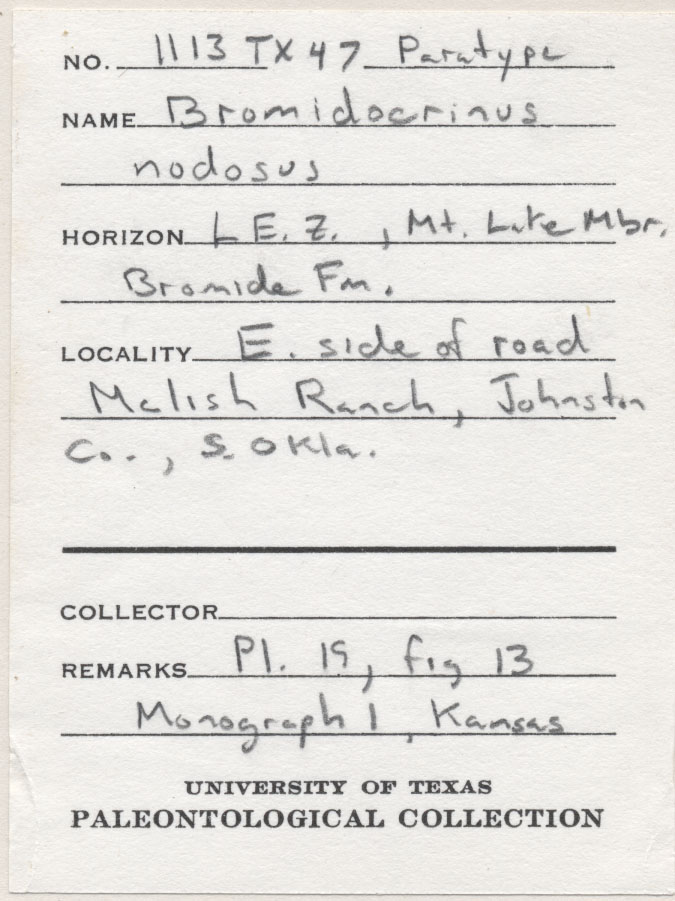 NO. 1113 TX 47 Paratype
NAME Bromidocrinus
nodosus
HORIZON L E. Z. , Mt. Lake Mbr.
Bromide Fm.
LOCALITY E. side of road
Mclish Ranch, Johnston
Co., S. Okla.
COLLECTOR
REMARKS Pl. 19, fig 13
Monograph 1, Kansas
UNIVERSITY OF TEXAS
PALEONTOLOGICAL COLLECTION